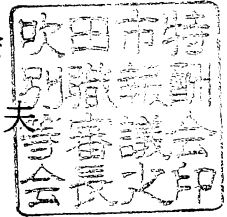 吹田市特
別職報酬
等審議会
会長之印
夫